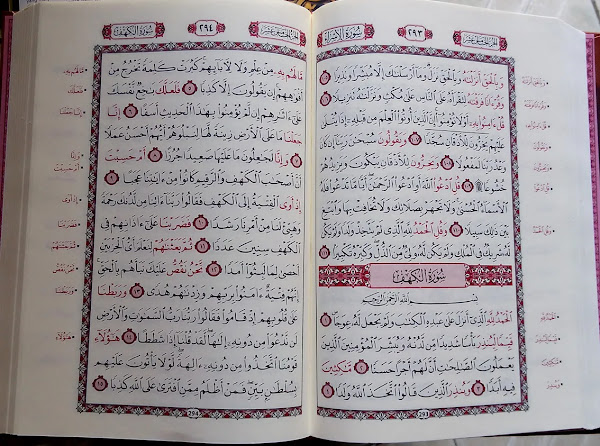 الجزء الخامس عشر
٢٩٣
سورة الإسراء
وَبِالْحَقِّ أَنزَلْنَاهُ وَبِالْحَقِّ نَزَلَ وَمَا أَرْسَلْنَاكَ إِلَّا مُبَشِّرًا وَنَذِيرًا ١٠٥
وَقُرْءَانًا فَرَقْنَاهُ لِتَقْرَأَهُ عَلَى النَّاسِ عَلَىٰ مُكْثٍ وَنَزَّلْنَاهُ تَنزِيلًا ١٠٦
قُلْ ءَامِنُوا بِهِ أَوْ لَا تُؤْمِنُوا إِنَّ الَّذِينَ أُوتُوا الْعِلْمَ مِن قَبْلِهِ إِذَا يُتْلَىٰ
عَلَيْهِمْ يَخِرُّونَ لِلْأَذْقَانِ سُجَّدًا ١٠٧ وَيَقُولُونَ سُبْحَانَ رَبِّنَا إِن كَانَ
وَعْدُ رَبِّنَا لَمَفْعُولًا ١٠٨ وَيَخِرُّونَ لِلْأَذْقَانِ يَبْكُونَ وَيَزِيدُهُمْ
خُشُوعًا ۩ ١٠٩ قُلِ ادْعُوا اللَّهَ أَوِ ادْعُوا الرَّحْمَٰنَ أَيًّا مَّا تَدْعُوا فَلَهُ
الْأَسْمَاءُ الْحُسْنَىٰ وَلَا تَجْهَرْ بِصَلَاتِكَ وَلَا تُخَافِتْ بِهَا وَابْتَغِ
بَيْنَ ذَٰلِكَ سَبِيلًا ١١٠ وَقُلِ الْحَمْدُ لِلَّهِ الَّذِي لَمْ يَتَّخِذْ وَلَدًا وَلَمْ يَكُن
لَّهُ شَرِيكٌ فِي الْمُلْكِ وَلَمْ يَكُن لَّهُ وَلِيٌّ مِّنَ الذُّلِّ وَكَبِّرْهُ تَكْبِيرًا ١١١
سورة الكهف
بِسْمِ اللَّهِ الرَّحْمَٰنِ الرَّحِيمِ
الْحَمْدُ لِلَّهِ الَّذِي أَنزَلَ عَلَىٰ عَبْدِهِ الْكِتَابَ وَلَمْ يَجْعَل لَّهُ عِوَجًا ١
قَيِّمًا لِّيُنذِرَ بَأْسًا شَدِيدًا مِّن لَّدُنْهُ وَيُبَشِّرَ الْمُؤْمِنِينَ الَّذِينَ
يَعْمَلُونَ الصَّالِحَاتِ أَنَّ لَهُمْ أَجْرًا حَسَنًا ٢ مَّاكِثِينَ
فِيهِ أَبَدًا ٣ وَيُنذِرَ الَّذِينَ قَالُوا اتَّخَذَ اللَّهُ وَلَدًا ٤
293
الجزء الخامس عشر
٢٩٤
سورة الكهف
مَّا لَهُم بِهِ مِنْ عِلْمٍ وَلَا لِآبَائِهِمْ كَبُرَتْ كَلِمَةً تَخْرُجُ مِنْ
أَفْوَاهِهِمْ إِن يَقُولُونَ إِلَّا كَذِبًا ٥ فَلَعَلَّكَ بَاخِعٌ نَّفْسَكَ
عَلَىٰ ءَاثَارِهِمْ إِن لَّمْ يُؤْمِنُوا بِهَٰذَا الْحَدِيثِ أَسَفًا ٦ إِنَّا
جَعَلْنَا مَا عَلَى الْأَرْضِ زِينَةً لَّهَا لِنَبْلُوَهُمْ أَيُّهُمْ أَحْسَنُ عَمَلًا
٧ وَإِنَّا لَجَاعِلُونَ مَا عَلَيْهَا صَعِيدًا جُرُزًا ٨ أَمْ حَسِبْتَ
أَنَّ أَصْحَابَ الْكَهْفِ وَالرَّقِيمِ كَانُوا مِنْ ءَايَاتِنَا عَجَبًا ٩
إِذْ أَوَى الْفِتْيَةُ إِلَى الْكَهْفِ فَقَالُوا رَبَّنَا ءَاتِنَا مِن لَّدُنكَ رَحْمَةً
وَهَيِّئْ لَنَا مِنْ أَمْرِنَا رَشَدًا ١٠ فَضَرَبْنَا عَلَىٰ ءَاذَانِهِمْ فِي
الْكَهْفِ سِنِينَ عَدَدًا ١١ ثُمَّ بَعَثْنَاهُمْ لِنَعْلَمَ أَيُّ الْحِزْبَيْنِ
أَحْصَىٰ لِمَا لَبِثُوا أَمَدًا ١٢ نَّحْنُ نَقُصُّ عَلَيْكَ نَبَأَهُم بِالْحَقِّ
إِنَّهُمْ فِتْيَةٌ ءَامَنُوا بِرَبِّهِمْ وَزِدْنَاهُمْ هُدًى ١٣ وَرَبَطْنَا
عَلَىٰ قُلُوبِهِمْ إِذْ قَامُوا فَقَالُوا رَبُّنَا رَبُّ السَّمَاوَاتِ وَالْأَرْضِ
لَن نَّدْعُوَ مِن دُونِهِ إِلَٰهًا لَّقَدْ قُلْنَا إِذًا شَطَطًا ١٤ هَٰؤُلَاءِ
قَوْمُنَا اتَّخَذُوا مِن دُونِهِ ءَالِهَةً لَّوْلَا يَأْتُونَ عَلَيْهِم
بِسُلْطَانٍ بَيِّنٍ فَمَنْ أَظْلَمُ مِمَّنِ افْتَرَىٰ عَلَى اللَّهِ كَذِبًا ١٥
294
مَّا لَهُم بِهِ
فَلَعَلَّكَ
إِنَّا جَعَلْنَا
وَإِنَّا
أَمْ حَسِبْتَ
إِذْ أَوَى
فَضَرَبْنَا
ثُمَّ بَعَثْنَاهُمْ
نَّحْنُ نَقُصُّ
وَرَبَطْنَا
هَٰؤُلَاءِ